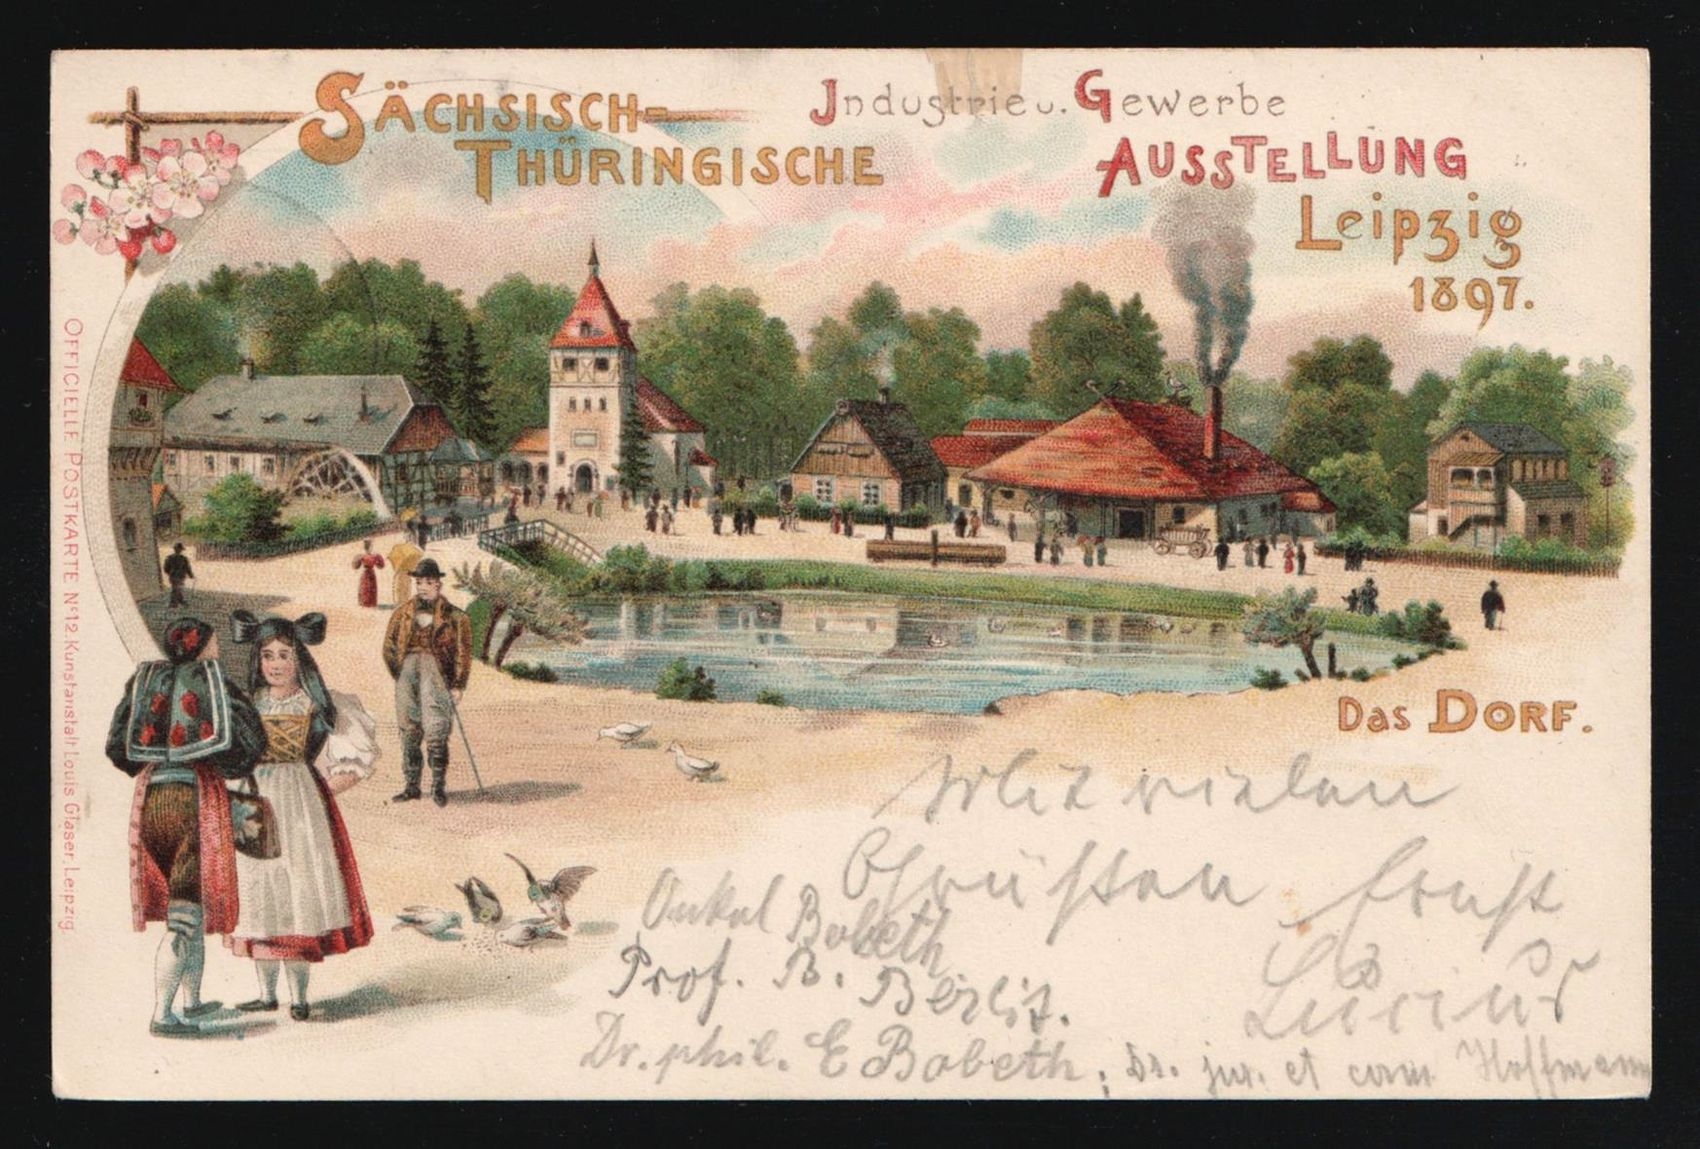 SÄCHSISCH-
THÜRINGISCHE
Industrie u. Gewerbe
AUSSTELLUNG
Leipzig
1897.
OFFICIELLE POSTKARTE No12. Kunstanstalt Louis Glaser, Leipzig.
Das DORF.
Mit vielen
Grüßen Ernst
Onkel Bobeth
Prof. B. Berlit.
Dr. phil. E Bobeth, Dr. jur. et cam Hoffmann